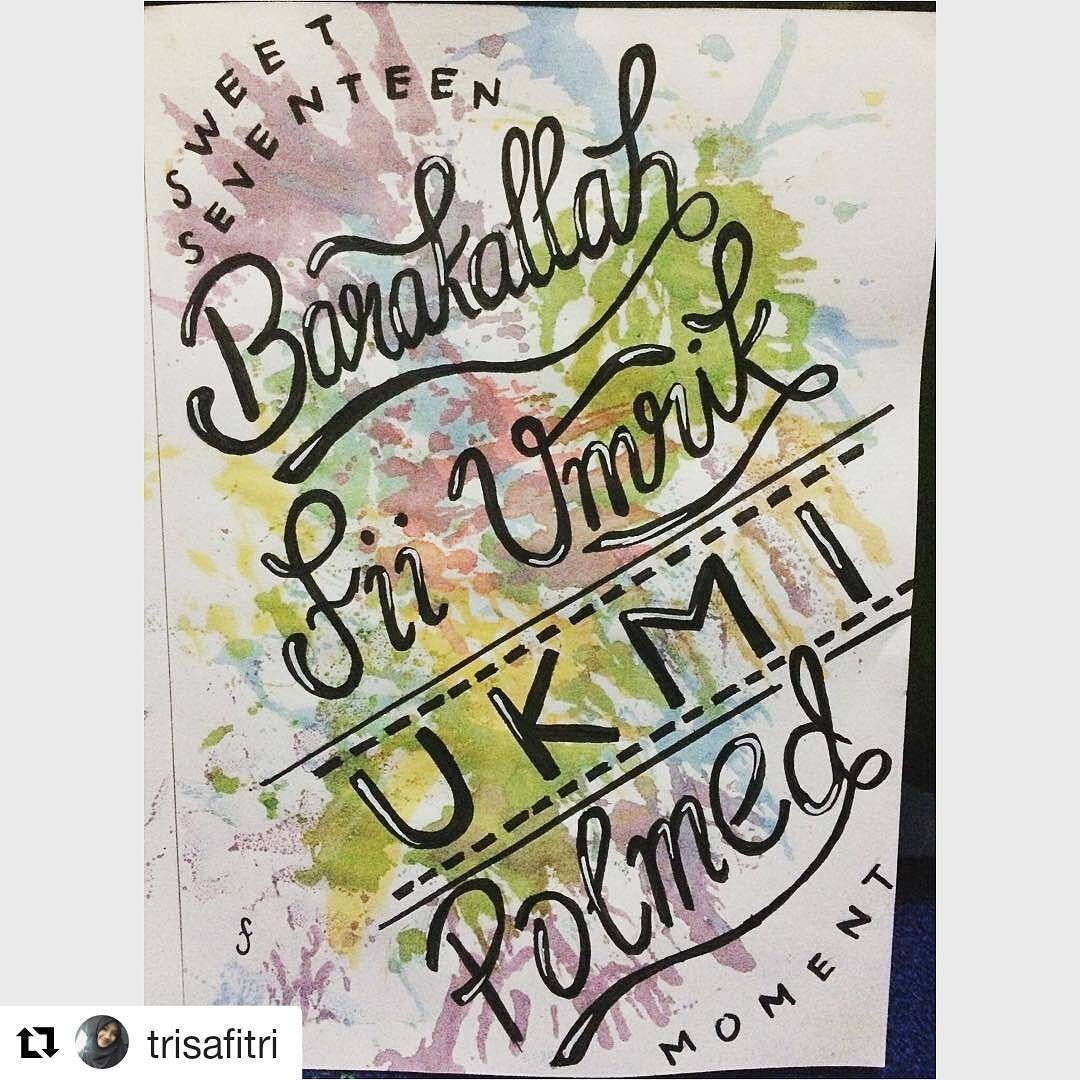 SWEET
SEVENTEEN
Barakallah
Fii Umrik
UKMI
Polmed
MOMENT
f
trisafitri